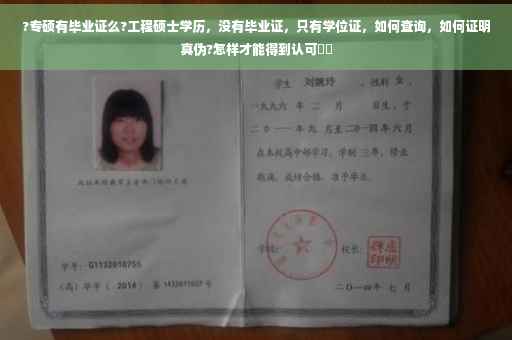 ?专硕有毕业证么?工程硕士学历，没有毕业证，只有学位证，如何查询，如何证明
真伪?怎样才能得到认可□□
学生 刘婉玲 ，性别 女 ，
一九九六 年 二 月 日生，于
二〇一一年九 月至二〇一四年 六 月
在本校高中部学习，学制 三年，修业
期满，成绩合格，准予毕业。
学号： G1132010755
（高）毕字（ 2014 ）第 1432011607 号
学校：
校长：
二〇一四年 七 月